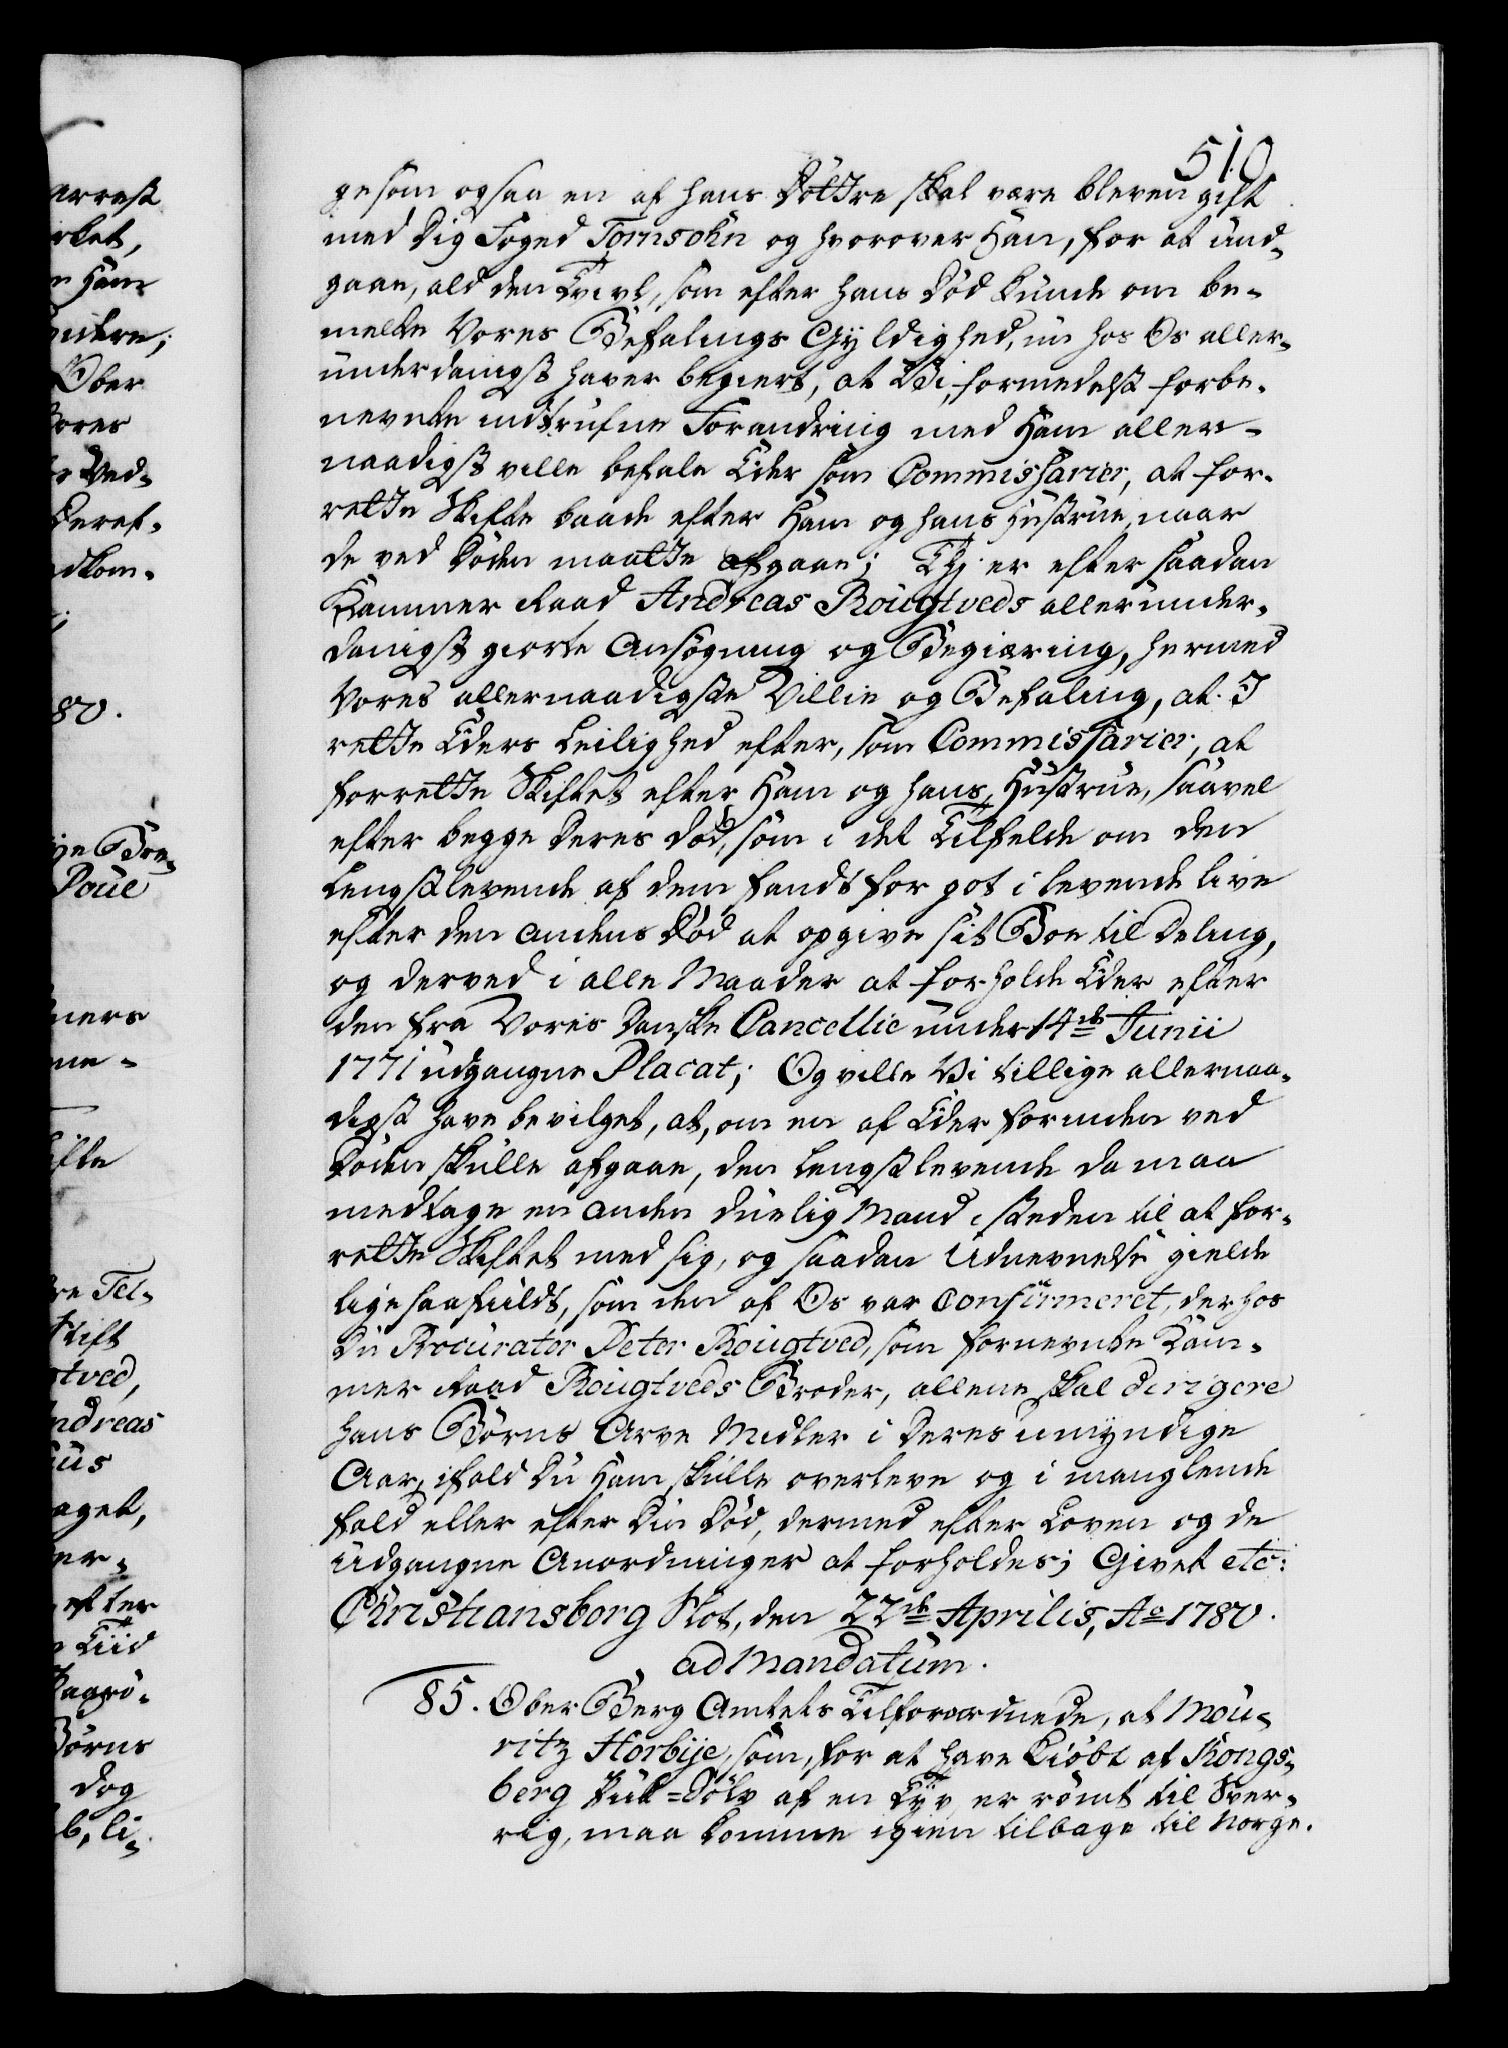 510
gesom ogsaa en af hans Döttre skal være bleven gift
med dig Foged Tornsohn og hvorover Han, for at und-
gaae, ald den Tvivl, som efter hans Död kunde om be-
meldte Vores Befalings Gyldighed, nu hos Os aller-
underdanigst haver begiert, at Vi, formedelst forbe-
nevnte indtrufne Forandring med Ham aller-
naadigst ville befale Eder som Commissarier, at for-
rette Skifte baade efter Ham og hans Hustrue, naar
de ved Döden maatte afgaae; Thj er efter saadan
Kammer Raad Andreas Rougtveds allerunder-
danigst giorte Ansögning og Begiæring, hermed
Vores allernaadigste Villie og Befaling, at I
rette Eders Leilighed efter, som Commissarier, at
forrette Skiftet efter Ham og hans Hustrue, saavel
efter begge deres Död, som i det Tilfelde om den
Lengstlevende af dem fandt for got i levende Live
efter den andens Död at opgive sit Boe til Deling,
og derved i alle Maader at forholde Eder efter
den fra Vores Danske Cancellie under 14de Junii
1771 udgangne Placat; Og ville Vi tillige allernaa-
digst have bevilget, at, om en af Eder forinden ved
Döden skulle afgaae, den Lengstlevende da maa
medtage en anden duelig Mand i steden til at for-
rette Skiftet med sig, og saadan Udnevnelse gielde
lige saa fuldt, som den af Os var confirmeret, derhos
Du Procurator Peter Rougtved, som fornevnte Kam-
mer Raad Rougtveds Broder, allene skal dirigere
hans Börns Arve Midler i deres umyndige
Aar, ifald Du Ham skulle overleve og i manglende
fald eller efter Din Död, dermed efter Loven og de
udgangne Anordninger at forholdes; Givet etc:
Christiansborg Slot, den 22de Aprilis, Ao 1780.
ad Mandatum.
85. Ober Berg Amtets Tilforordnede, at Mou-
ritz Horbije, som, for at have kiöbt af Kongs-
berg Puk-Sölv af en Tyv er römt til Sver-
rig, maa komme igien tilbage til Norge.